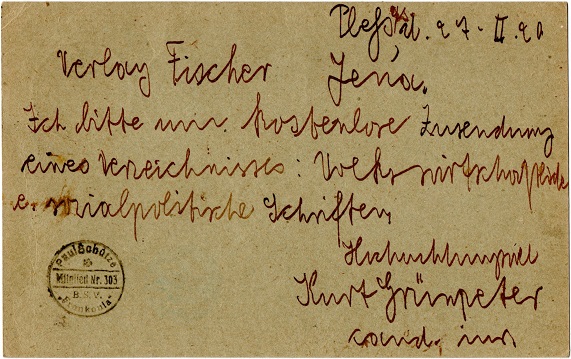 Pleß, d. 27. II. 20
Verlag Fischer Jena.
Ich bitte um kostenlose Zusendung
eines Verzeichnisses: Volkswirtschaftliche
u. sozialpolitische Schriften.
Hochachtungsvoll
Kurt Grünpeter
cand. iur.
Paul Schätze
Mitglied Nr. 303
B.S.V.
"Frankonia"